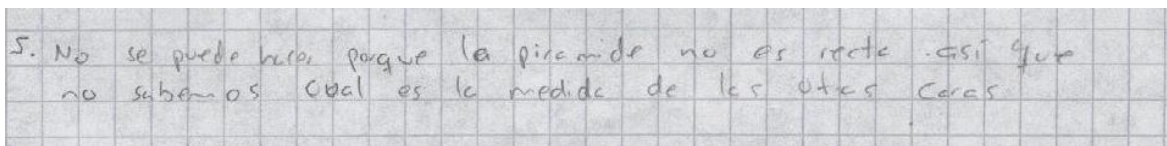 5. No se puede hacer porque la piramide no es recta así que
no sabemos cual es la medida de las otras caras